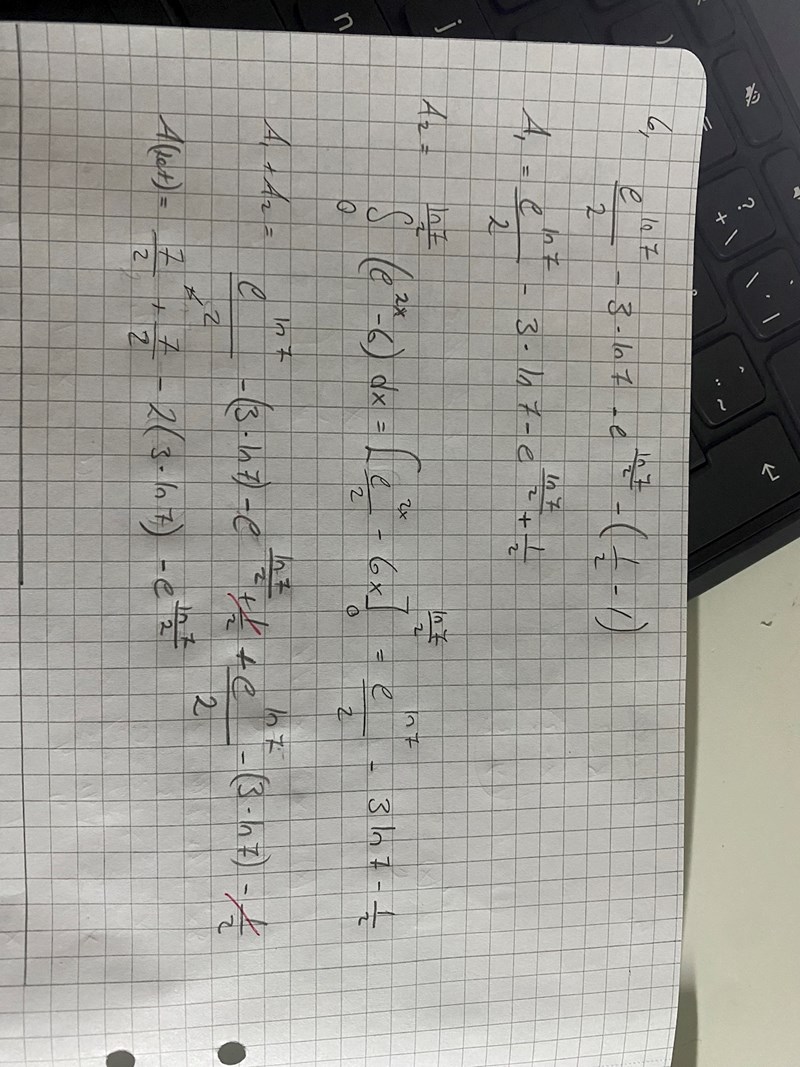 6, e^(ln7)/2 - 3·ln7 - e^(ln7/2) - (1/2 - 1)
A₁ = e^(ln7)/2 - 3·ln7 - e^(ln7/2) + 1/2
A₂ = ∫₀^(ln7/2) (e^(2x) - 6) dx = [e^(2x)/2 - 6x]₀^(ln7/2) = e^(ln7)/2 - 3ln7 - 1/2
A₁ + A₂ = e^(ln7)/2 - (3·ln7) - e^(ln7/2) + 1/2 + e^(ln7)/2 - (3·ln7) - 1/2
A(tot) = 7/2 + 7/2 - 2(3·ln7) - e^(ln7/2)
n
j
)
=
? + \
\ . |
: ~